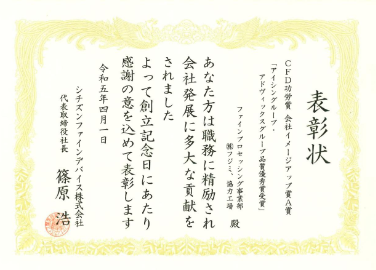 表彰状
CFD功労賞 会社イメージアップ賞A賞
「アイシングループ・
アドヴィックスグループ品質優秀賞受賞」
ファインプロセッシング事業部
㈱フジミ、協力工場 殿
あなた方は職務に精励され
会社発展に多大な貢献を
されました
よって創立記念日にあたり
感謝の意を込めて表彰します
令和五年四月一日
シチズンファインデバイス株式会社
代表取締役社長 篠原 浩